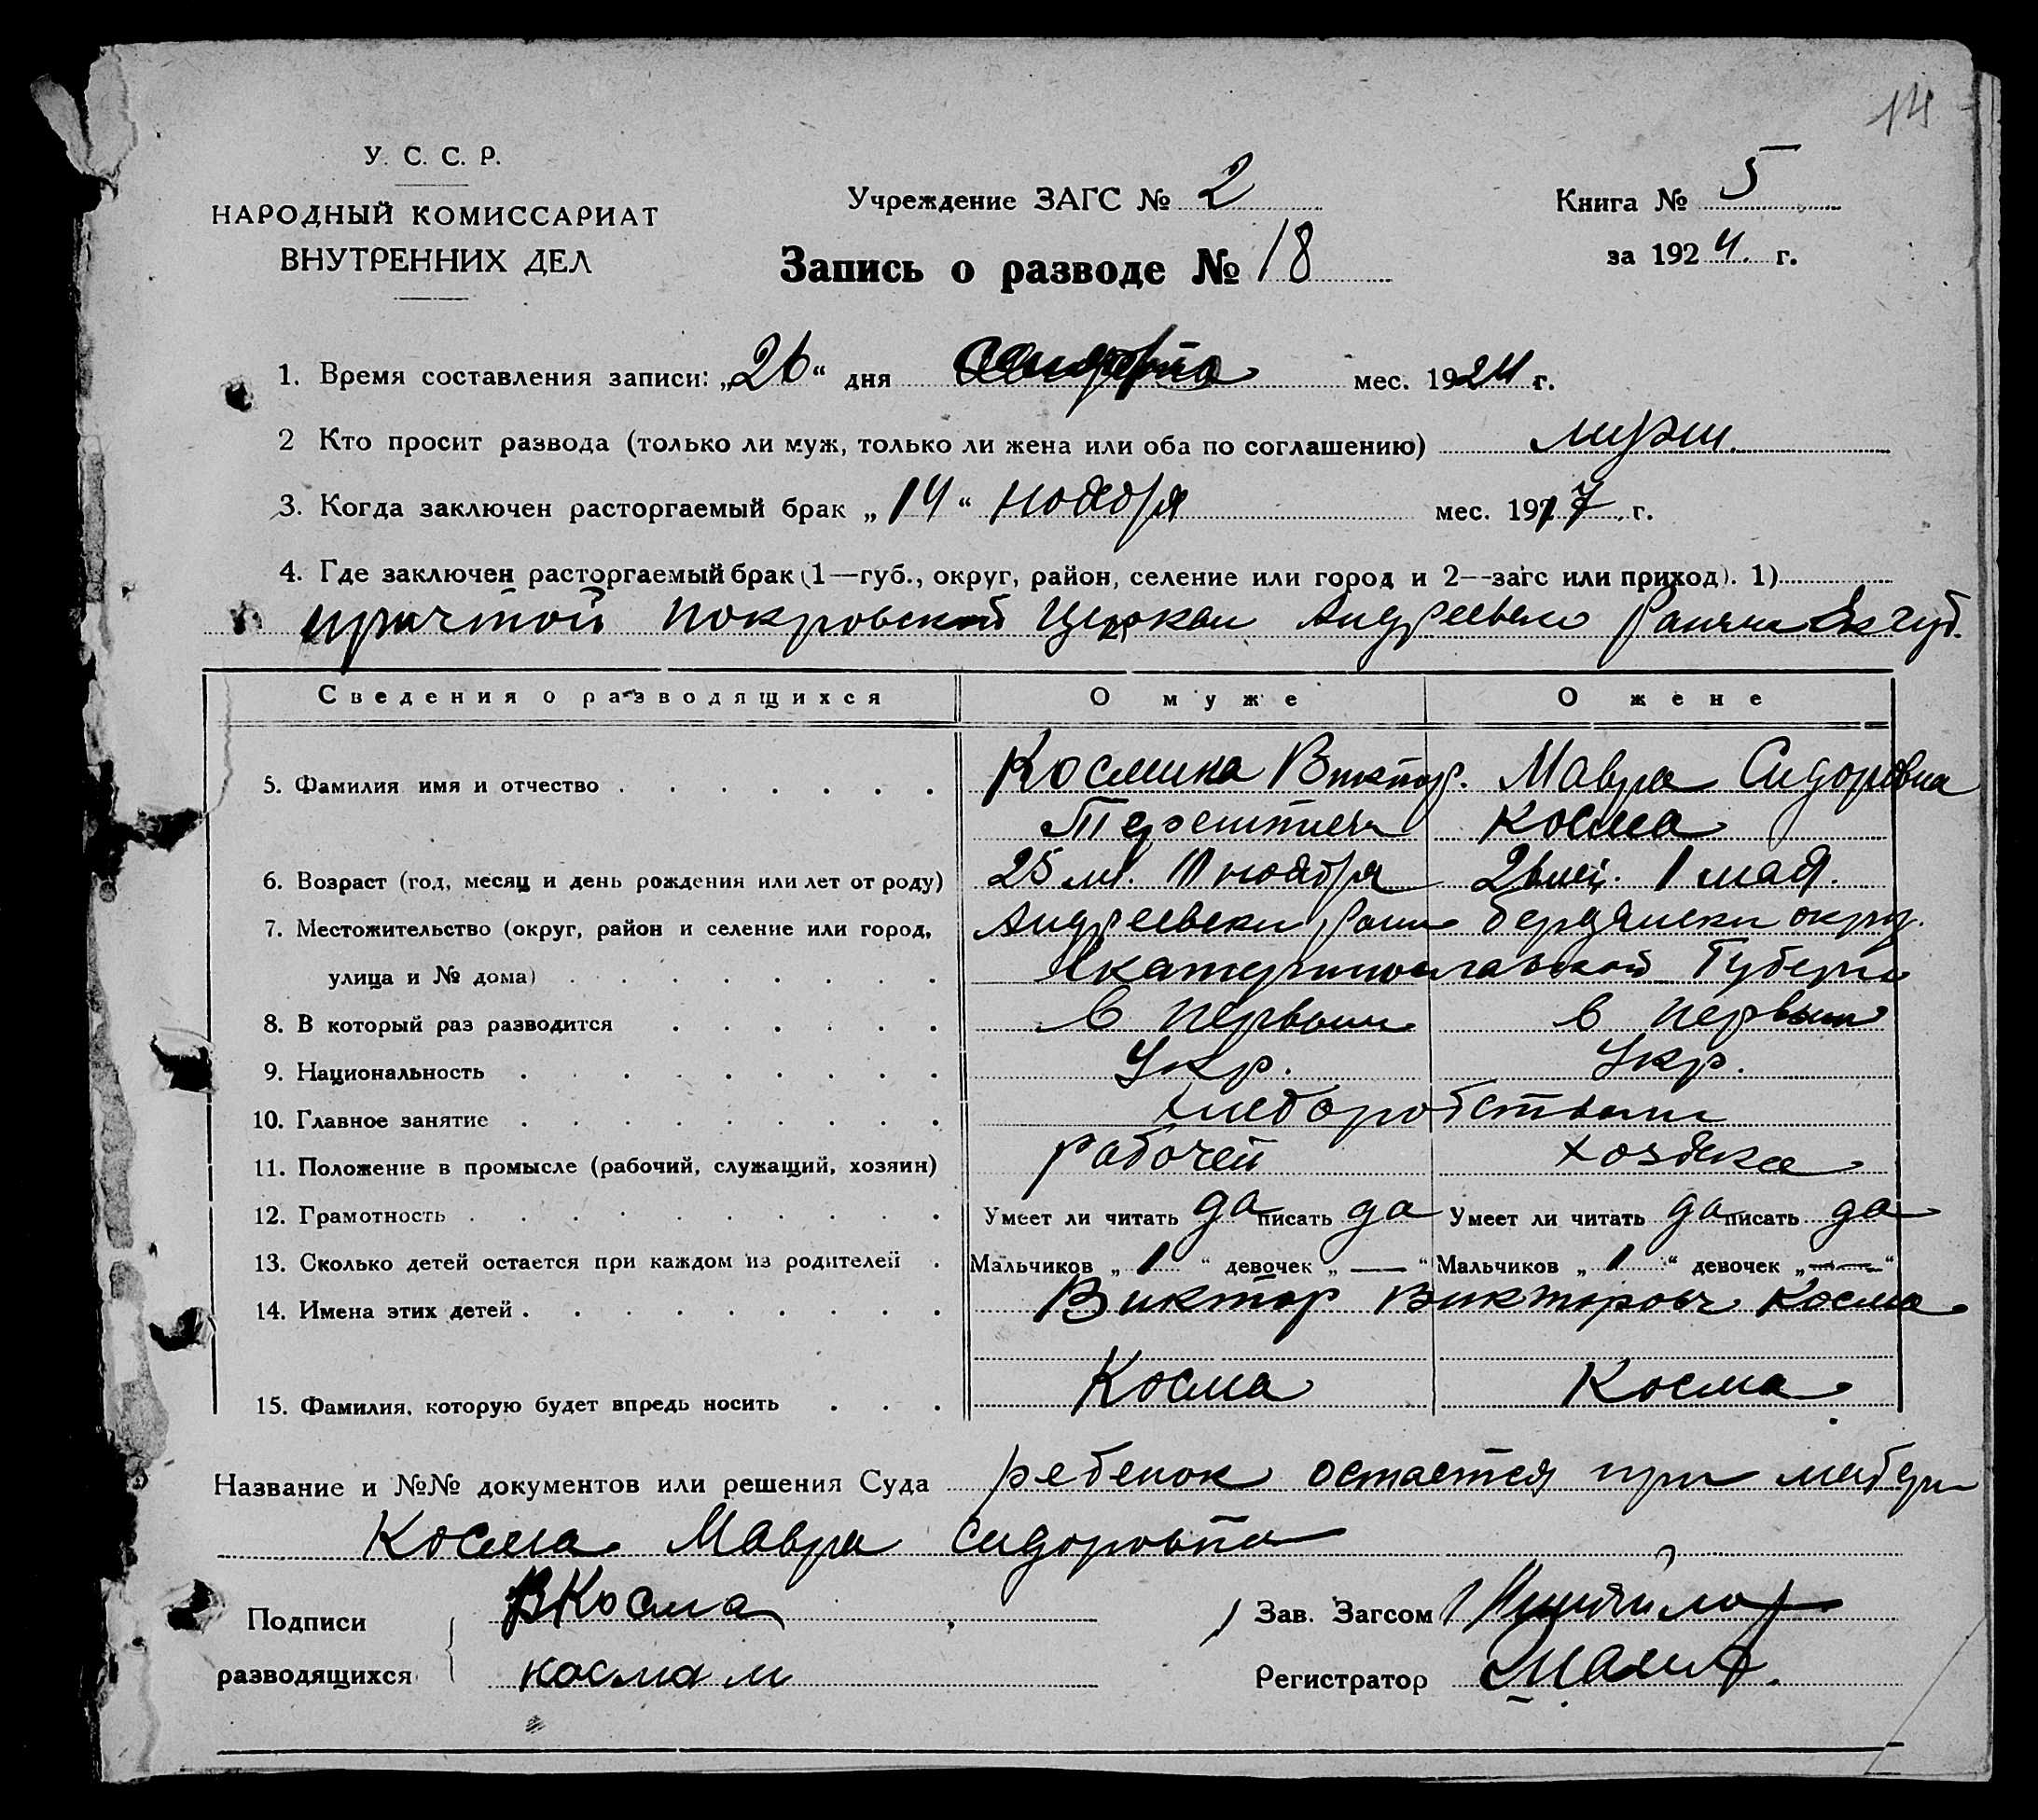 14
У. С. С. Р.
НАРОДНЫЙ КОМИССАРИАТ
ВНУТРЕННИХ ДЕЛ
Учреждение ЗАГС № 2
Запись о разводе № 18
Книга № 5
за 1924 г.
1. Время составления записи: „26“ дня мес. 1924 г.
2 Кто просит развода (только ли муж, только ли жена или оба по соглашению)
3. Когда заключен расторгаемый брак „14“ ноября мес. 1917 г.
4. Где заключен расторгаемый брак (1—губ., округ, район, селение или город и 2--загс или приход). 1)
причтой покровской Церкви Андреевск Ек губ.
Сведения о разводящихся О муже О жене
5. Фамилия имя и отчество . . . . . . . Космина Виктор. Мавра Сидоровна
Терентиев Косма
6. Возраст (год, месяц и день рождения или лет от роду) 25 ноября 1 мая.
7. Местожительство (округ, район и селение или город, Андреевски бердянски округ.
улица и № дома) . . . . . . . . Екатеринославской Губерни
8. В который раз разводится . . . . . . в первый в первый
9. Национальность . . . . . . . . . Укр. Укр.
10. Главное занятие . . . . . . . . . хлеборобством
11. Положение в промысле (рабочий, служащий, хозяин) рабочей хозяйка
12. Грамотность . . . . . . . . . . Умеет ли читать да писать да Умеет ли читать да писать да
13. Сколько детей остается при каждом из родителей . Мальчиков „ 1 “ девочек „ — “ Мальчиков „ 1 “ девочек „ — “
14. Имена этих детей . . . . . . . . . Виктор Викторович Косма
15. Фамилия, которую будет впредь носить . . . Косма Косма
Название и №№ документов или решения Суда ребенок остается при матери
Косма Мавра Сидоровна
Подписи ВКосма
разводящихся косма м
Зав. Загсом
Регистратор